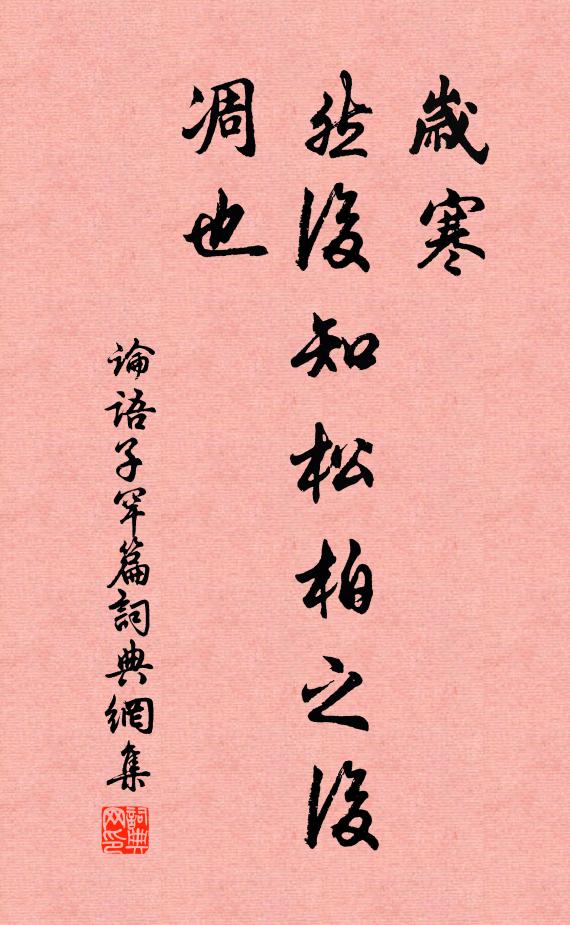 歲寒
然後知松柏之後
凋也
論語子罕篇詞典網集
詞典
网印